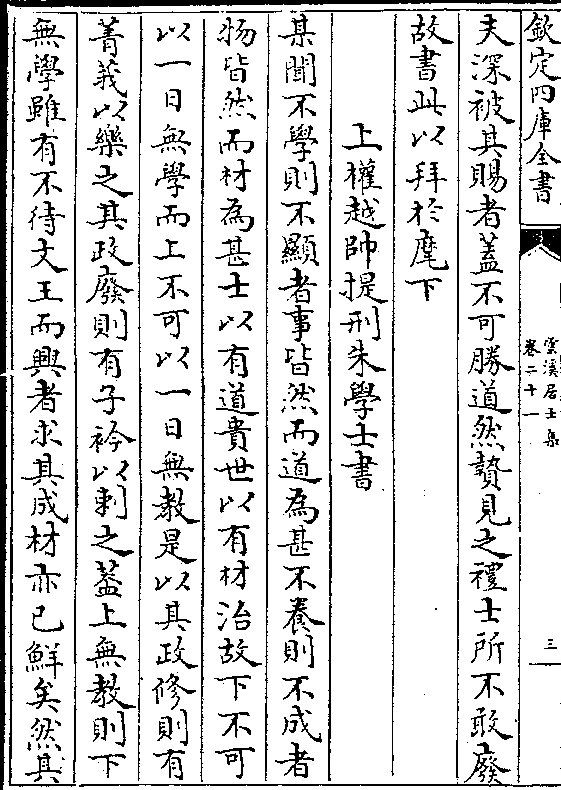 欽定四庫全書
雲溪居士集
卷二十一
三
夫深被其賜者蓋不可勝道然贄見之禮士所不敢廢
故書此以拜於麾下
上權越帥提刑朱學士書
某聞不學則不顯者事皆然而道為甚不養則不成者
物皆然而材為甚士以有道貴世以有材治故下不可
以一日無學而上不可以一日無教是以其政修則有
菁莪以樂之其政廢則有子衿以刺之蓋上無教則下
無學雖有不待文王而興者求其成材亦已鮮矣然其